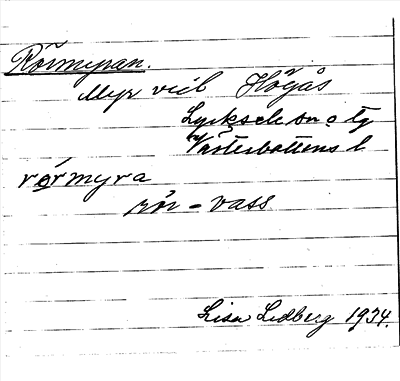 Rörmyran.
Myr vid Högås
Lycksele sn o tg
Västerbottens l
rörmyra
rör = vass
Lisa Lidberg 1934.